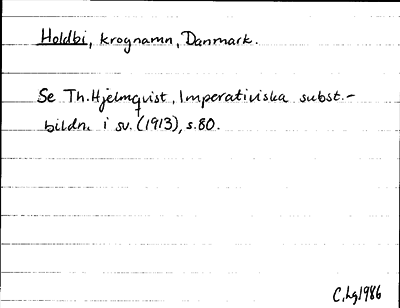 Holdbi, krognamn, Danmark.
Se Th. Hjelmqvist, Imperativiska subst.-
bildn. i sv. (1913), s.80.
C.Lg 1986